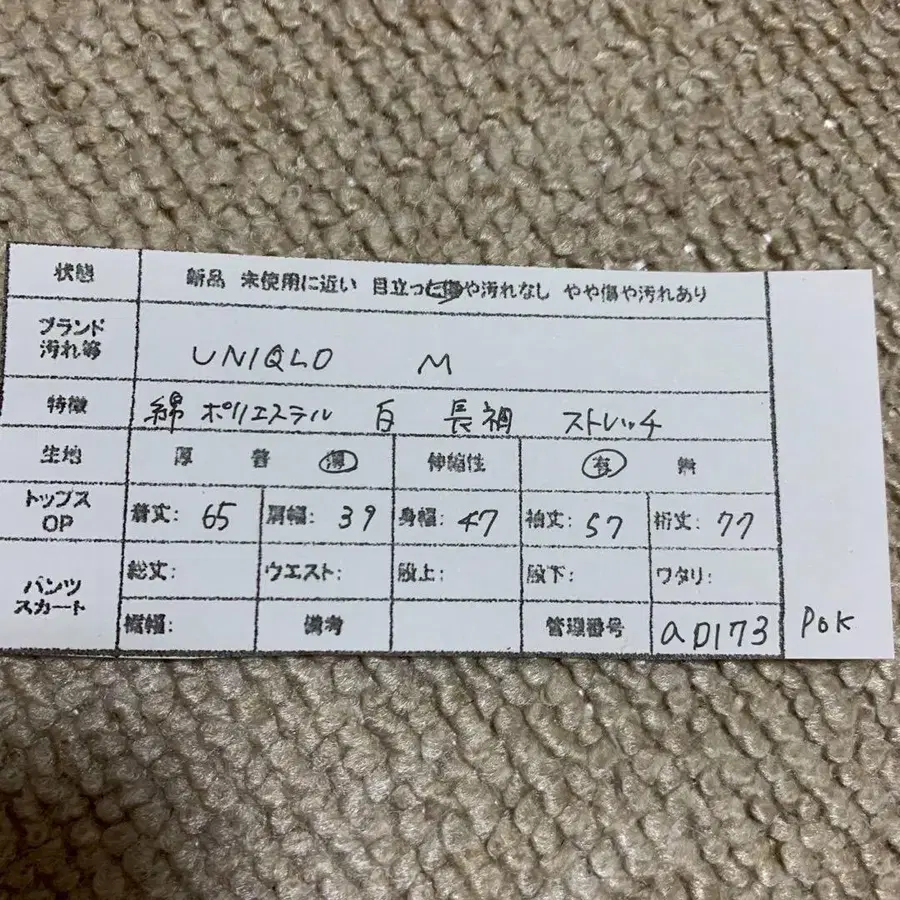 状態 新品 未使用に近い 目立った傷や汚れなし やや傷や汚れあり
ブランド
汚れ等 UNIQLO M
特徴 綿 ポリエステル 白 長袖 ストレッチ
生地 厚 普 薄 伸縮性 有 無
トップス
OP 着丈: 65 肩幅: 39 身幅: 47 袖丈: 57 裄丈: 77
パンツ
スカート 総丈: ウエスト: 股上: 股下: ワタリ:
裾幅: 備考 管理番号 aD173 POK